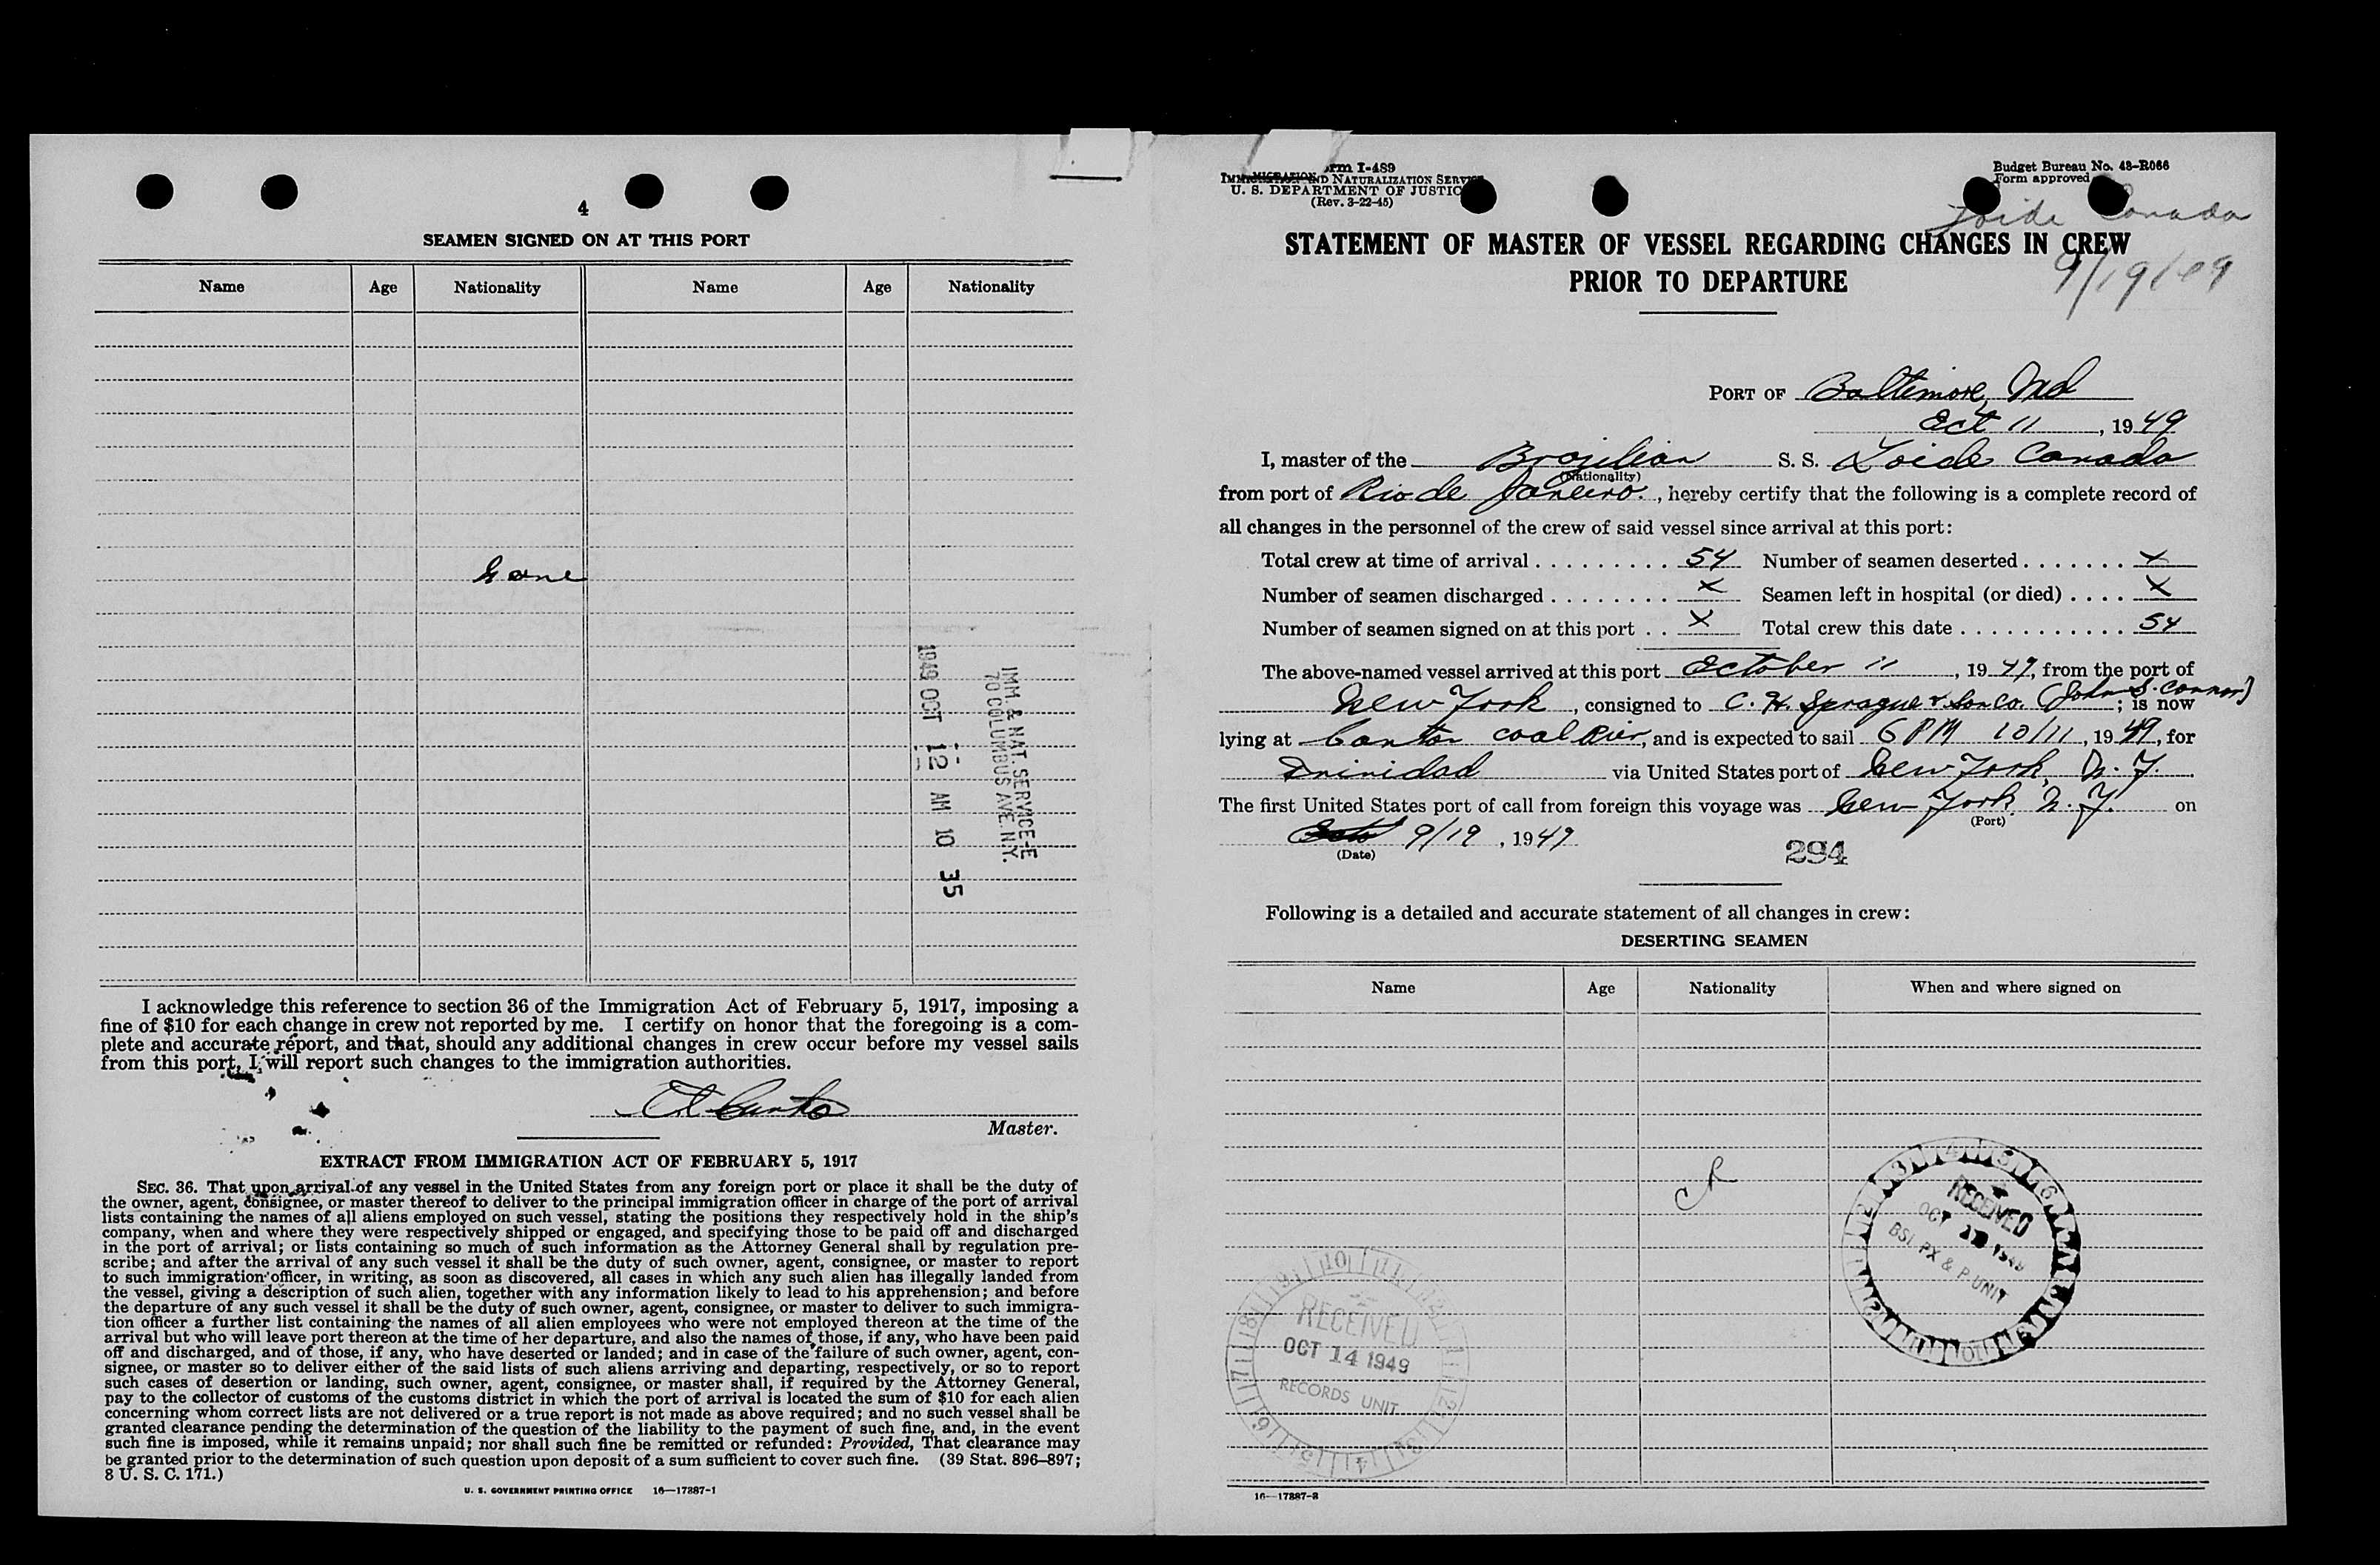 4
SEAMEN SIGNED ON AT THIS PORT
Name Age Nationality Name Age Nationality
None
IMM & NAT. SERVICE-E
70 COLUMBUS AVE. N.Y.
1949 OCT 12 AM 10 35
I acknowledge this reference to section 36 of the Immigration Act of February 5, 1917, imposing a
fine of $10 for each change in crew not reported by me. I certify on honor that the foregoing is a com-
plete and accurate report, and that, should any additional changes in crew occur before my vessel sails
from this port, I will report such changes to the immigration authorities.
Master.
EXTRACT FROM IMMIGRATION ACT OF FEBRUARY 5, 1917
SEC. 36. That upon arrival of any vessel in the United States from any foreign port or place it shall be the duty of
the owner, agent, consignee, or master thereof to deliver to the principal immigration officer in charge of the port of arrival
lists containing the names of all aliens employed on such vessel, stating the positions they respectively hold in the ship's
company, when and where they were respectively shipped or engaged, and specifying those to be paid off and discharged
in the port of arrival; or lists containing so much of such information as the Attorney General shall by regulation pre-
scribe; and after the arrival of any such vessel it shall be the duty of such owner, agent, consignee, or master to report
to such immigration officer, in writing, as soon as discovered, all cases in which any such alien has illegally landed from
the vessel, giving a description of such alien, together with any information likely to lead to his apprehension; and before
the departure of any such vessel it shall be the duty of such owner, agent, consignee, or master to deliver to such immigra-
tion officer a further list containing the names of all alien employees who were not employed thereon at the time of the
arrival but who will leave port thereon at the time of her departure, and also the names of those, if any, who have been paid
off and discharged, and of those, if any, who have deserted or landed; and in case of the failure of such owner, agent, con-
signee, or master so to deliver either of the said lists of such aliens arriving and departing, respectively, or so to report
such cases of desertion or landing, such owner, agent, consignee, or master shall, if required by the Attorney General,
pay to the collector of customs of the customs district in which the port of arrival is located the sum of $10 for each alien
concerning whom correct lists are not delivered or a true report is not made as above required; and no such vessel shall be
granted clearance pending the determination of the question of the liability to the payment of such fine, and, in the event
such fine is imposed, while it remains unpaid; nor shall such fine be remitted or refunded: Provided, That clearance may
be granted prior to the determination of such question upon deposit of a sum sufficient to cover such fine. (39 Stat. 896–897;
8 U. S. C. 171.)
U. S. GOVERNMENT PRINTING OFFICE 16—17887-1
rm I-489
IMMIGRATION AND NATURALIZATION SERVICE
U. S. DEPARTMENT OF JUSTIC
(Rev. 3-22-45)
Budget Bureau No. 43-R066
Form approved
Loide Canada
9/19/49
STATEMENT OF MASTER OF VESSEL REGARDING CHANGES IN CREW
PRIOR TO DEPARTURE
PORT OF Baltimore, Md
Oct 11, 1949
I, master of the Brazilian S. S. Loide Canada
(Nationality)
from port of Rio de Janeiro., hereby certify that the following is a complete record of
all changes in the personnel of the crew of said vessel since arrival at this port:
Total crew at time of arrival . . . . . . . . . 54 Number of seamen deserted . . . . . . . X
Number of seamen discharged . . . . . . . . X Seamen left in hospital (or died) . . . . X
Number of seamen signed on at this port . . X Total crew this date . . . . . . . . . . . 54
The above-named vessel arrived at this port October 11, 1949, from the port of
New York, consigned to C. H. Sprague & Son Co. (John S. Connor); is now
lying at Canton coal Pier, and is expected to sail 6 PM 10/11, 1949, for
Trinidad via United States port of New York, N. Y.
The first United States port of call from foreign this voyage was New York, N. Y. on
(Port)
9/19, 1949
(Date)
294
Following is a detailed and accurate statement of all changes in crew:
DESERTING SEAMEN
Name Age Nationality When and where signed on
RECEIVED
OCT
BSI PX & P UNIT
RECEIVED
OCT 14 1949
RECORDS UNIT
16—17887-3